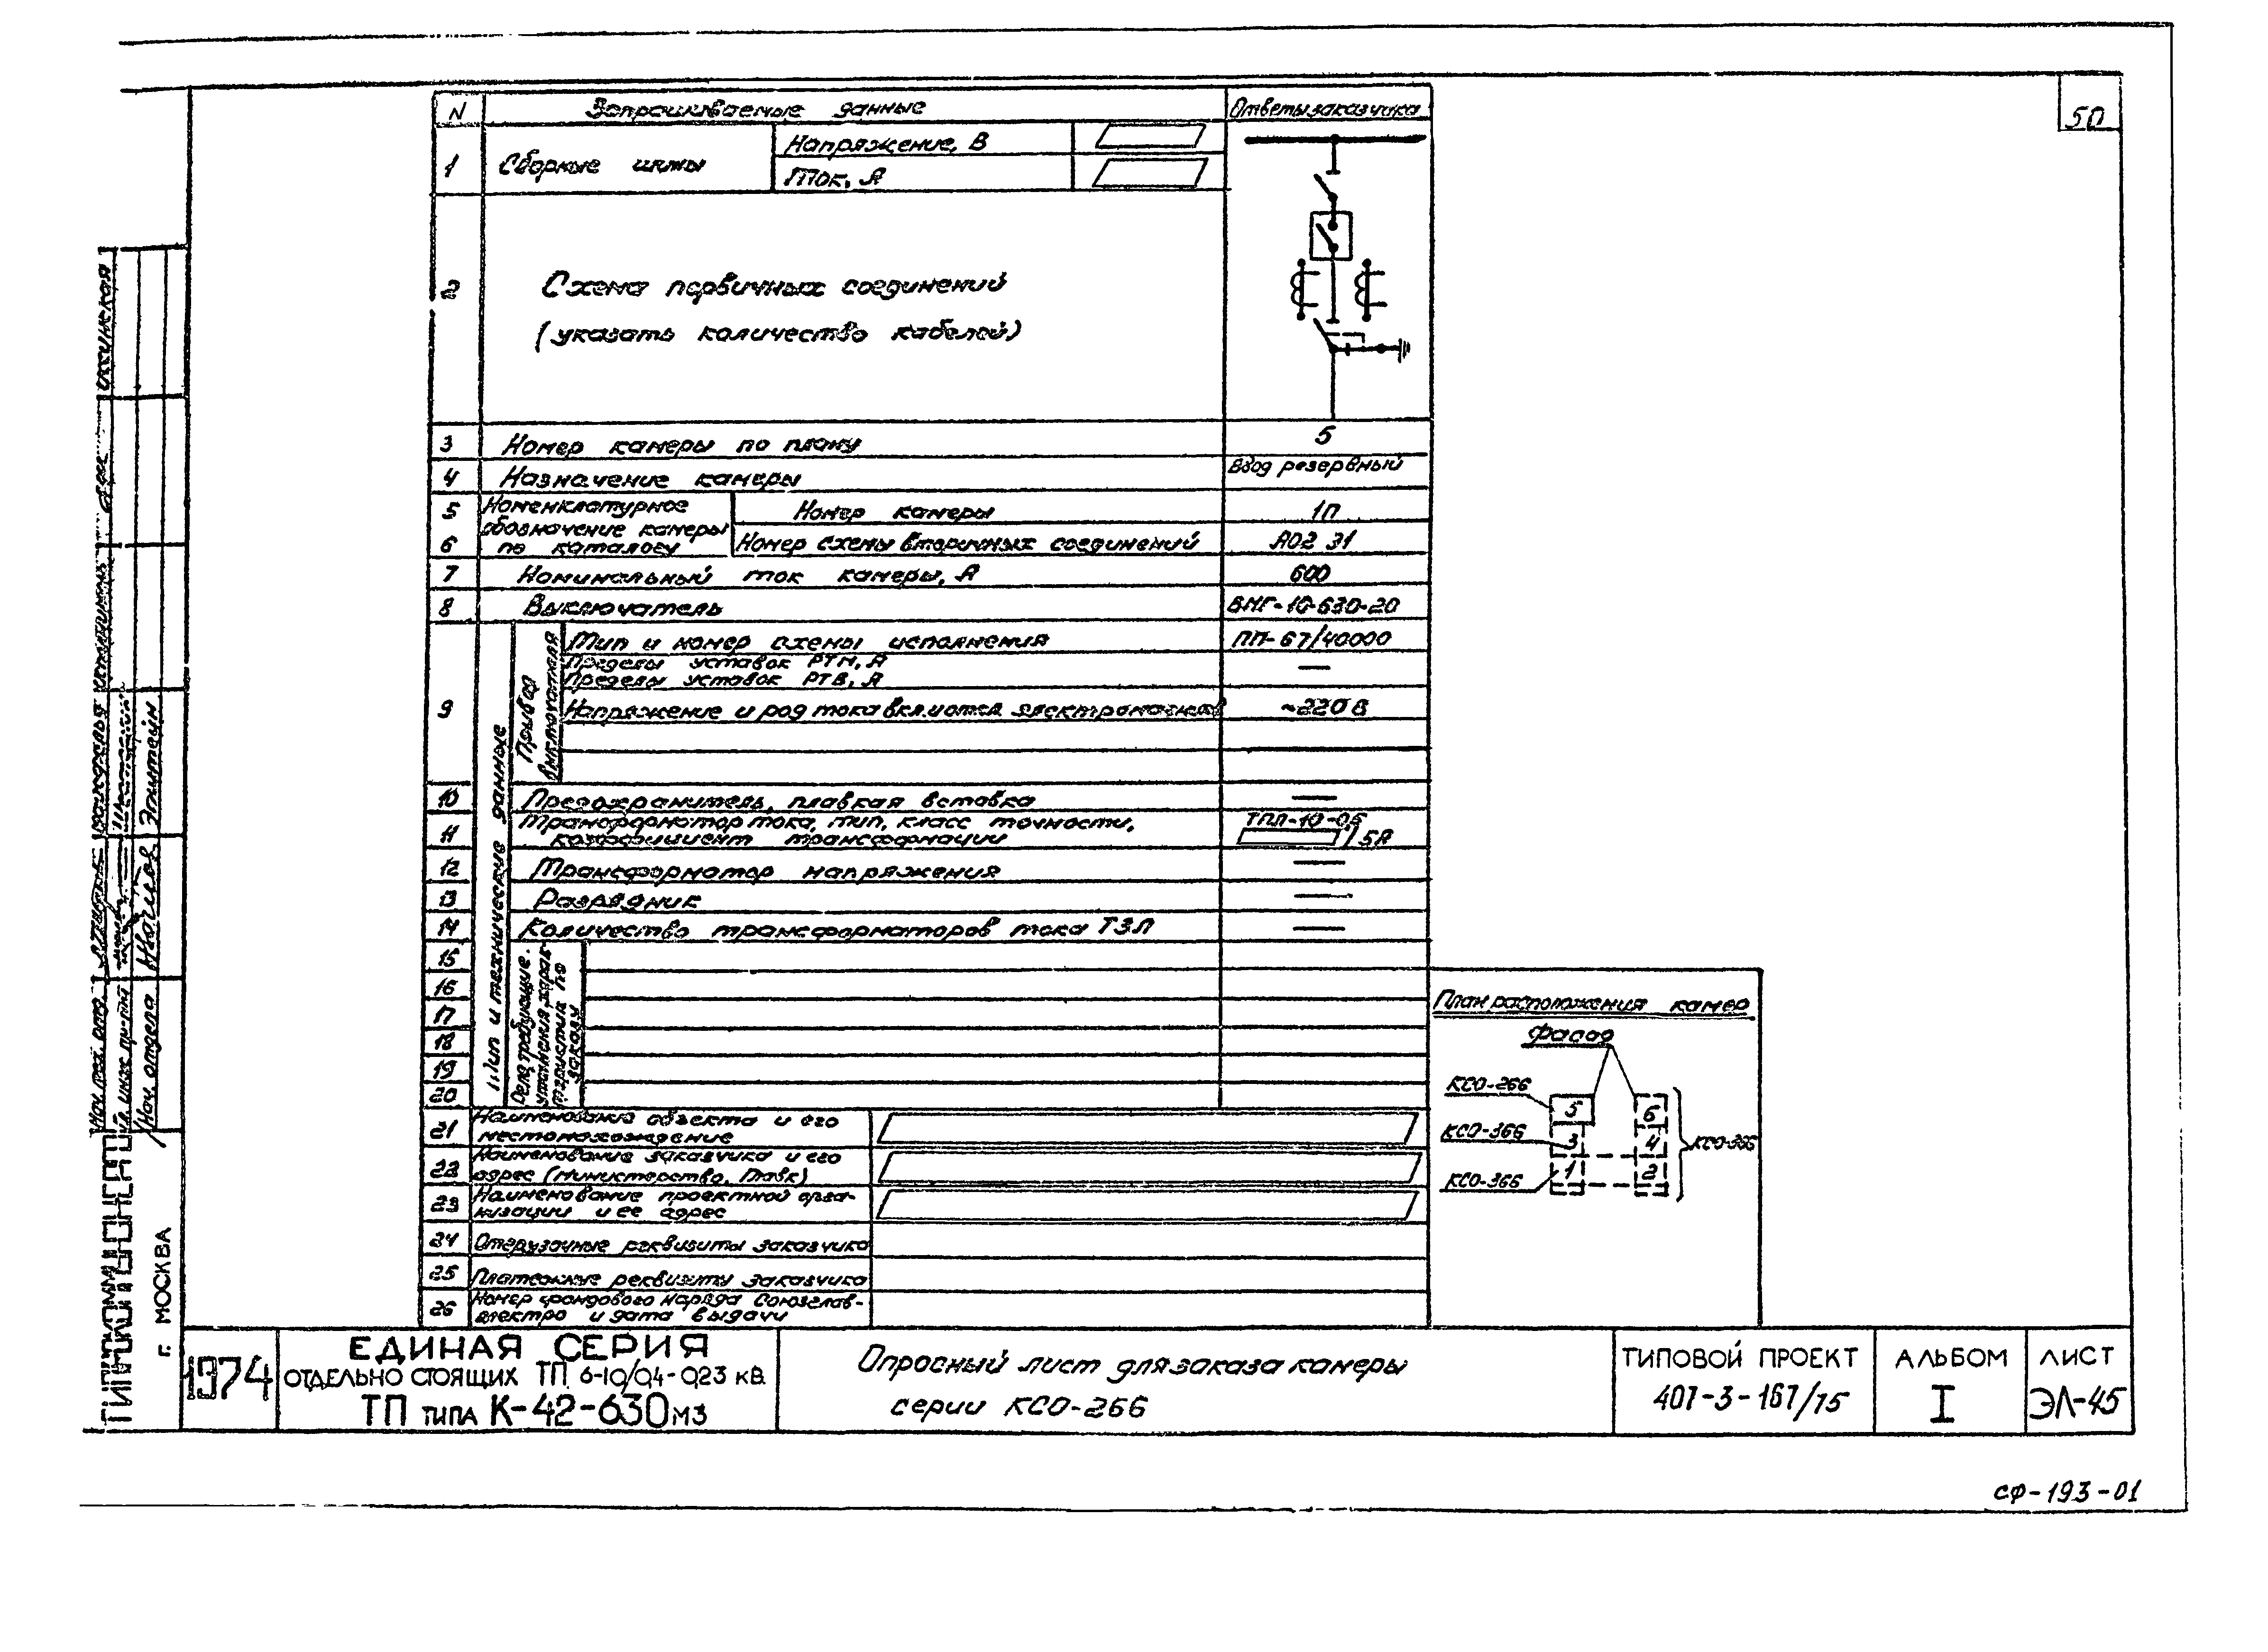 50
N Запрашиваемые данные Ответы заказчика
1 Сборные шины Напряжение, В
Ток, А
2 Схема первичных соединений
(указать количество кабелей)
3 Номер камеры по плану 5
4 Назначение камеры Ввод резервный
5 Номенклатурное обозначение камеры по каталогу Номер камеры 1П
6 Номер схемы вторичных соединений А02 31
7 Номинальный ток камеры, А 600
8 Выключатель ВМГ-10-630-20
Тип и технические данные
9 Привод выключателя
Тип и номер схемы исполнения ПП-67/40000
Пределы уставок РТМ, А —
Пределы уставок РТВ, А
Напряжение и род тока ~220В
10 Предохранитель, плавкая вставка —
11 Трансформатор тока, тип, класс точности, ТПЛ-10-0,5
коэффициент трансформации /5А
12 Трансформатор напряжения —
13 Разрядник —
14 Количество трансформаторов тока ТЗЛ —
15
16
17
18
19
20
21 Наименование объекта и его
местонахождение
22 Наименование заказчика и его
адрес (министерство, Главк)
23 Наименование проектной орга-
низации и ее адрес
24 Отгрузочные реквизиты заказчика
25 Платежные реквизиты заказчика
26 Номер фондового наряда Союзглав-
электро и дата выдачи
План расположения камер
Фасад
КСО-266 5 6
КСО-366 3 4 КСО-366
КСО-366 1 2
Нач. отдела
Эпштейн
г. МОСКВА
1974
ЕДИНАЯ СЕРИЯ
ОТДЕЛЬНО СТОЯЩИХ ТП 6-10/0,4-0,23 кВ
ТП ТИПА К-42-630М3
Опросный лист для заказа камеры
серии КСО-266
ТИПОВОЙ ПРОЕКТ
407-3-167/75
АЛЬБОМ
I
ЛИСТ
ЭЛ-45
СФ-193-01